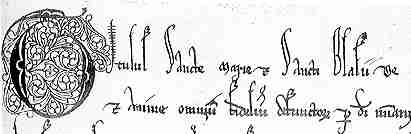 Titulus Sancte Marie & Sancti Blasii de
& Anime omniū fideliū defunctoꝝ ꝑ di